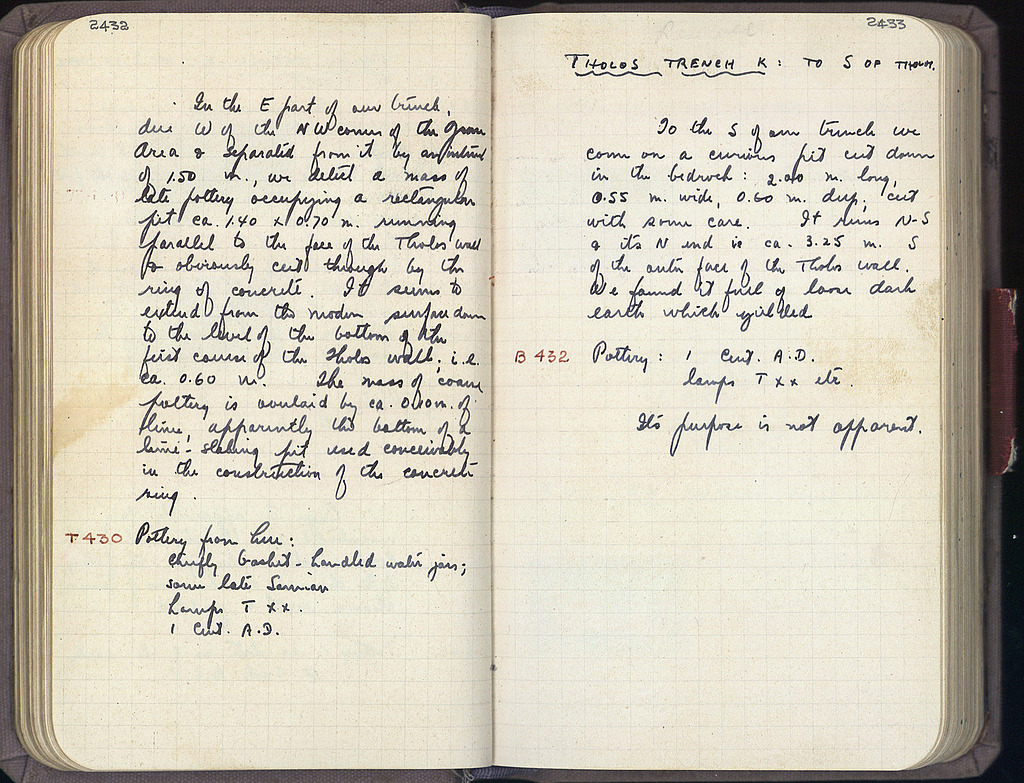 2432
In the E part of our trench,
due W of the NW corner of the
Area & separated from it by an interval
of 1.50 m., we detect a mass of
late pottery occupying a rectangular
pit ca. 1.40 x 0.70 m. running
parallel to the face of the Tholos wall
& obviously cut through by the
ring of concrete. It seems to
extend from the modern surface down
to the level of the bottom of the
first course of the Tholos wall, i.e.
ca. 0.60 m. The mass of coarse
pottery is overlaid by ca. 0.10 m. of
lime, apparently the bottom of a
lime-slaking pit used conceivably
in the construction of the concrete
ring.
T 430 Pottery from here:
chiefly basket-handled water jars;
some late Samian
Lamps T XX.
1 Cent. A.D.
2433
THOLOS TRENCH K: TO S OF THOLOS.
To the S of our trench we
come on a curious pit cut down
in the bedrock: 2.00 m. long,
0.55 m. wide, 0.60 m. deep, cut
with some care. It runs N-S
& its N end is ca. 3.25 m. S
of the outer face of the Tholos wall.
We found it full of loose dark
earth which yielded
B 432 Pottery: 1 Cent. A.D.
lamps T XX etc.
Its purpose is not apparent.